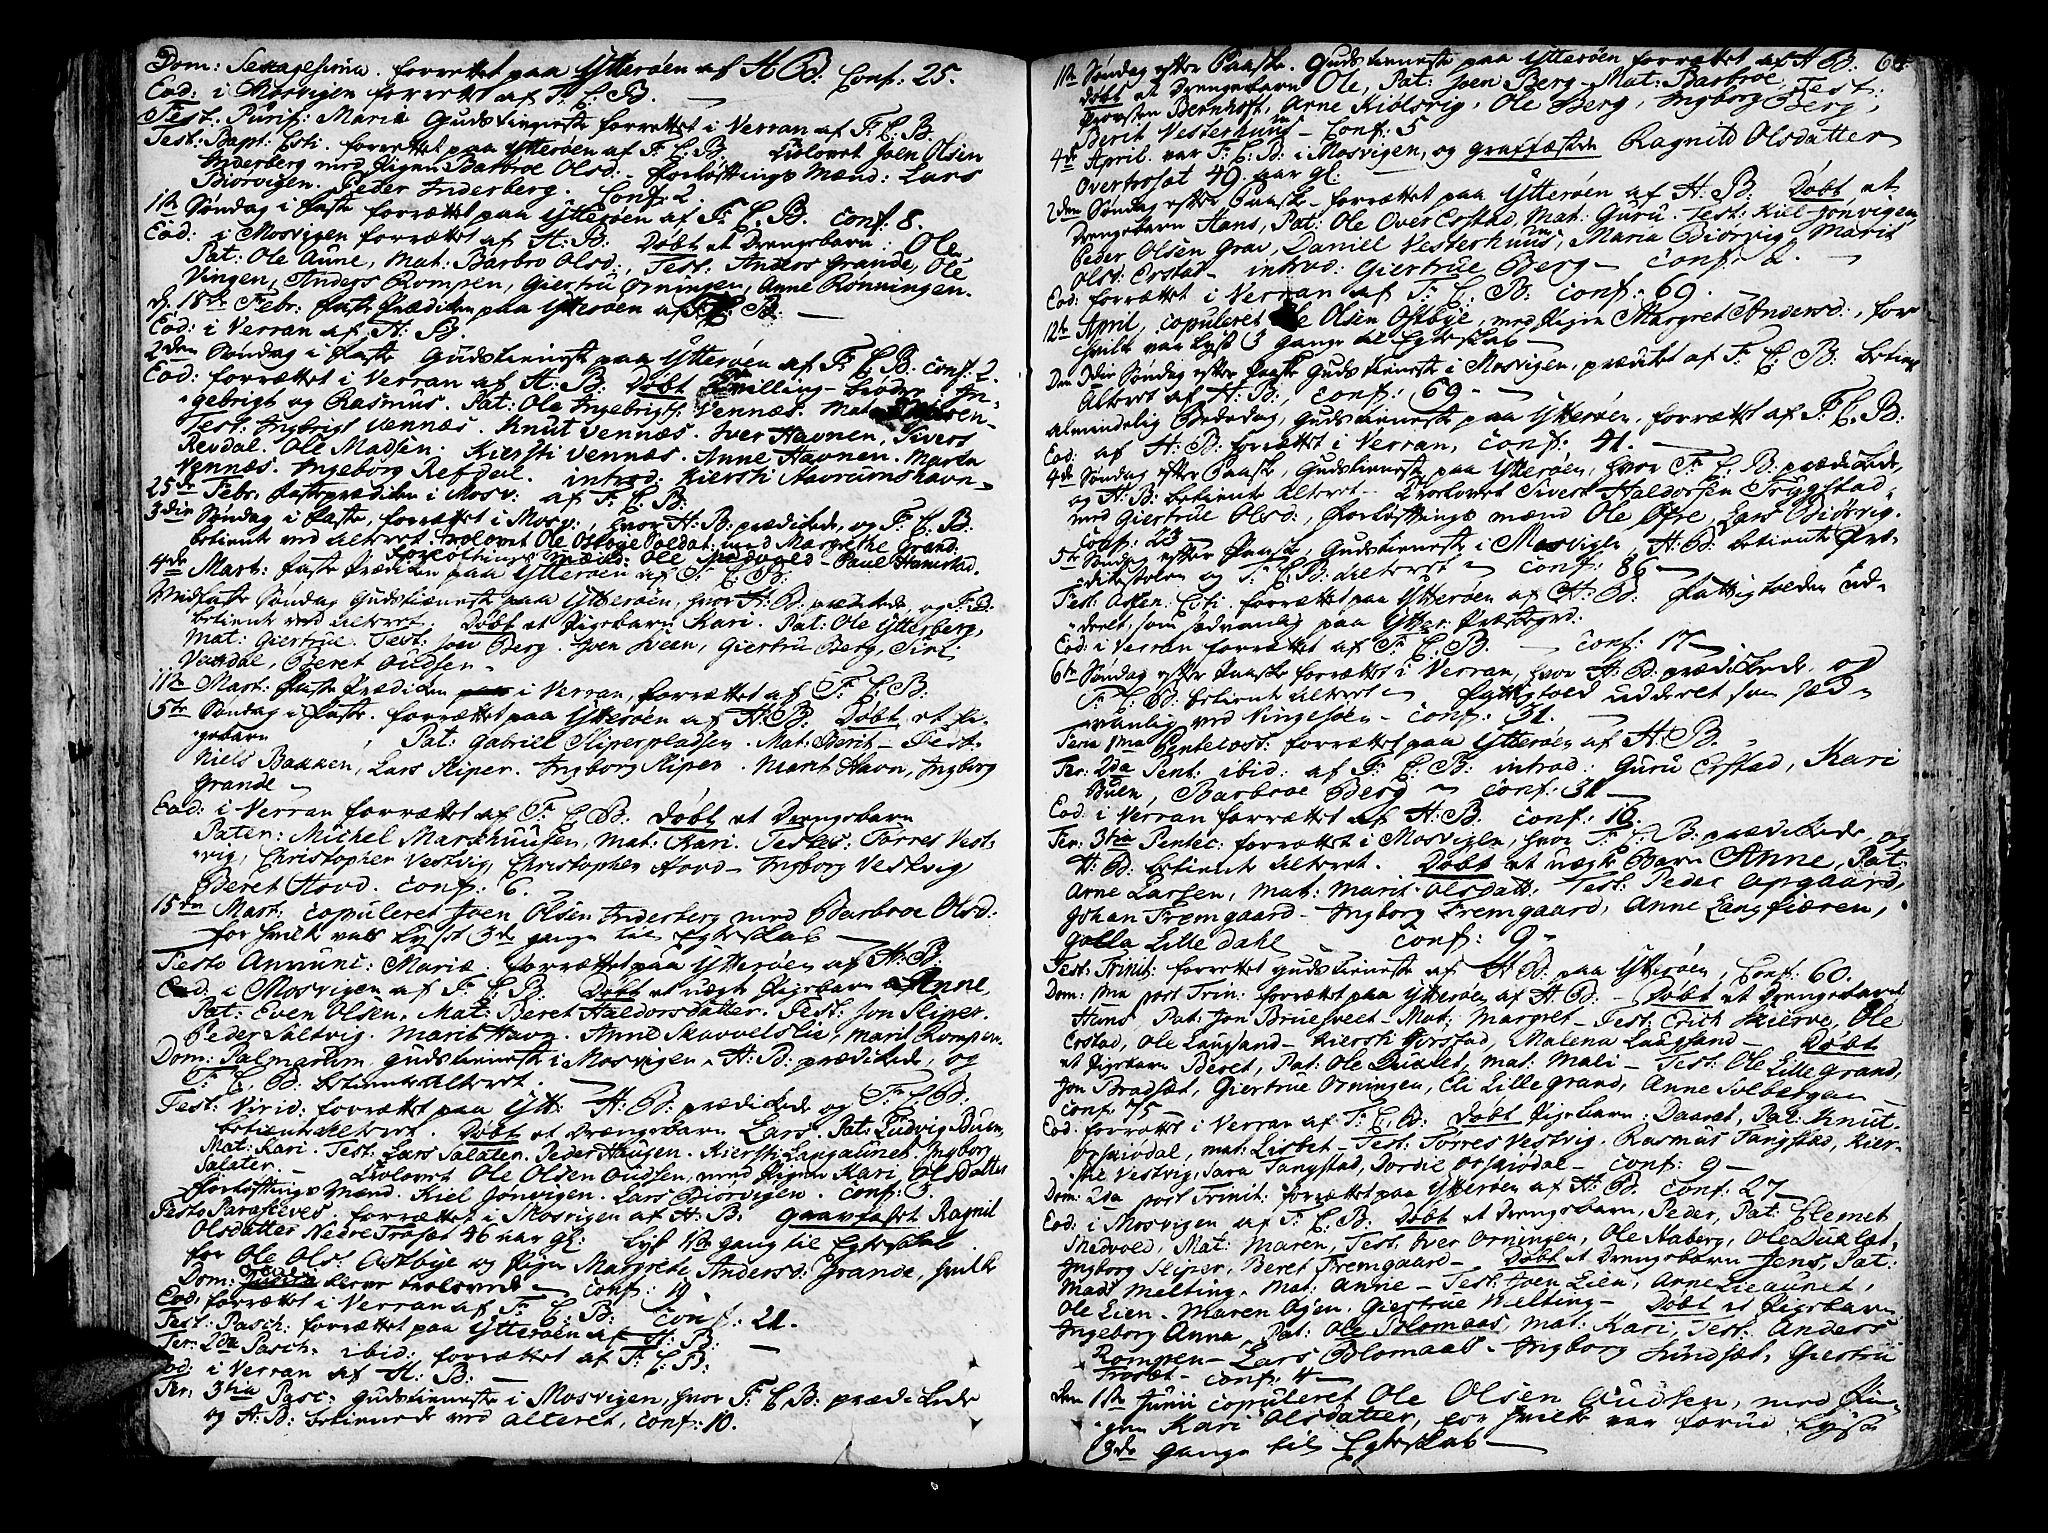 Dom: Sexagesima. forrettet paa Ytterøen af H B: Conf: 25.
Eod: i Mosvigen forrettet af F. C. B.
Fest. Purif: Mariæ Gudstieneste forrettet i Verran af F. C. B.
Fest: Bapt: Xsti. forrettet paa Ytterøen af F. C. B. Trolovet Joen Olsen
Inderberg med Pigen Barbroe Olsd: forløftnings Mænd: Lars
Biørvigen. Peder Inderberg. Conf: 2.
1ste Søndag i Faste forrættet paa Ytterøen af F. C. B. conf: 8.
Eod: i Mosvigen forrættet af H: B: Døbt et Drengebarn: Ole
Pat: Ole Aune, Mat: Barbro Olsd, Test: Anders Grande, Ole
Vingen, Anders Rompen, Giertru Orningen, Anne Rønningen.
d. 18de Febr: faste Prædiken paa Ytterøen af F C B.
Eod: i Verran af H: B
2den Søndag i Faste Gudstieneste paa Ytterøen af F. C. B: conf: 2.
Eod: forrættet i Verran af H: B: Døbt Tvilling-Brødre: In-
gebrigt og Rasmus. Pat: Ole Ingebrigts: Vennæs. Mat:
Test: Ingbrigt Vennæs. Knut Vennæs. Iver Havnen, Sivert
Revdal. Ole Madsen. Kiersti Vennæs. Anne Havnen. Marta
Vennæs. Ingeborg Refdeil. introd: Kiersti Havrumshavn
25de Febr: fasteprædiken i Mosv: af F: C: B:
3die Søndag i Faste, forrættet i Mosv:, hvor H: B: prædikede, og F. C. B.
betiente ved Alteret. trolovet Ole Ostbye Soldat: med Margrethe Grand:
Forløftnings Mænd: Ole Skedvold - Paul Hamstad.
4de Mart: faste Prædiken paa Ytterøen af F. C. B:
Midfaste Søndag Gudstieneste paa Ytterøen, hvor H: B: prædikede, og F. C. B:
betiente ved Alteret. Døbt et Pigebarn Kari. Pat: Ole Ytterberg,
Mat: Giertrue. Test: Joen Berg. Joen Sveen, Giertru Berg, Siri
Vandal, Beret Audsen
11te Mart: Faste Prædiken i Verran, forrættet af F. C. B.
5te Søndag i Faste. forrættet paa Ytterøen af H: B: Døbt et Pi-
gebarn , Pat: Gabriel Sliperpladsen. Mat: Berit - Test:
Niels Bakken, Lars Sliper. Ingborg Sliper. Marit Havn, Ingborg
Grande
Eod: i Verran forrættet af F. C. B: Døbt et Drengebarn
Pater: Michel Markhuusen, mat: Kari. Testes: Torres Vest-
vig, Christopher Vestvig, Christopher Hovd - Ingborg Vestvig
Beret Hovd. conf: 6.
15den Mart: copuleret Joen Olsen Inderberg med Barbroe Olsd:
for hvilk vart Lyst 3de gange til Egteskab
Festo Annunc: Mariæ. forrættet paa Ytterøen af H: B:
Eod: i Mosvigen af F. C. B: Døbt et uægte Pigebarn Anne,
Pat: Even Olsen, Mat: Beret Haldorsdatter. Test: Jon Sliper.
Peder Saltvig. Marit Havn. Anne Skavvelslie, Marit Rompen.
Dom: Palmarum Gudstieneste i Mosvigen. H: B: prædikede, og
F. C. B: betiente Alteret.
Fest: Virid: forrættet paa Ytt: H: B: prædikede og F. C. B:
betiente Alteret. Døbt et Drengebarn Lars. Pat: Ludvig Buen
Mat: Kari. Test: Lars Salater. Peder Haugen. Kiersti Langaunet. Ingborg
Salater. Trolovet Ole Olsen Audsen, med Pigen Kari Olsdatter
Forløftnings Mænd. Kiel Jønvigen. Lars Biørvigen. conf: 3.
Festo Parasceves. forrættet i Mosvigen af H: B: Graavfæstet Ragnil
Olsdatter Nedre Trøsat 46 aar gl: Lyst 1ste gang til Egteskab
for Ole Ols: Ostbye og Pigen Margrete Andersd: Grande, hvilk
trolovede conf: 19
Eod: forrættet i Verran af F. C. B: conf: 21.
Fest: Pasch: forrættet paa Ytterøen af H: B:
Fer: 2da Pasch: ibid: forrættet af F: C: B:
Eod: i Verran af H: B:
Fer: 3tia Pasc: Gudstieneste i Mosvigen, hvor F: C: B: prædikede
og H: B: betienede ved Alteret, conf: 10.
1ste Søndag efter Paaske. Gudstieneste paa Ytterøen forrættet af H B: 60
Døbt et Drengebarn Ole, Pat: Joen Berg - Mat: Barbroe, Test:
Provsten Bernhoft, Arne Kiølsvig, Ole Berg, Ingborg Berg,
Berit Vesterhuus - Conf: 5
4de April. var F. C. B: i Mosvigen, og graffæstede Ragnild Olsdatter
Overtrøsat 49 aar gl:
2den Søndag efter Paaske - forrættet paa Ytterøen af H: B: Døbt et
Drengebarn Hans, Pat: Ole Over Erstad, Mat: Guru. Test: Kiel Jønvigen
Peder Olsen Grav, Daniel Vesterhuus, Maria Biørvig, Marit
Olsd: Erstad - introd: Giertrue Berg - conf: 2.
Eod: forrættet i Verran af F. C. B: conf: 69.
12te April, copuleret Ole Olsen Ostbye, med Pigen Margret Andersd:, for
hvilk var Lyst 3 gange til Egteskab
Den 3die Søndag efter Paaske Gudstieneste i Mosvigen, prædiket af F. C. B: betient
Alteret af H: B:, conf: 69 -
almindelig Bededag, Gudstieneste paa Ytterøen, forrættet af F. C. B:
Eod: af H: B: forrættet i Verran, conf: 41.
4de Søndag efter Paaske, Gudstieneste paa Ytterøen, hvor F. C. B: prædikede,
og H: B: betiente Alteret - Trolovet Sivert Haldorsen Tryggstad,
med Giertrue Olsd:, Forløftnings mænd Ole Øfre, Lars Biørvig.
Conf: 23 -
5te Søndag efter Paaske, Gudstieneste i Mosvigen, H: B: betiente Præ-
dikestolen og F. C. B: Alteret - conf: 86 -
Fest: Assen: Xsti. forrættet paa Ytterøen af H: B: Fattigtolden ud-
deelt, som sædvanlig paa Ytter: Præstegrd:
Eod: i Verran forrættet af F. C. B. - conf: 17 -
6te Søndag efter Paaske forrættet i Verran, hvor H: B: prædikede og
F. C. B: betiente Alteret - fattigtoed uddeelet som sæd-
vanlig ved Vingesøen - conf: 31.
Feria 1ma Pentecost: forrættet paa Ytterøen af H: B.
Fer: 2da Pent: ibid: af F. C. B: introd: Guru Erstad, Kari
Buen, Barbroe Berg - conf: 31 -
Eod: i Verran forrættet af H: B: conf: 10.
Fer: 3tia Pentec: forrættet i Mosvigen, hvor F. C. B: prædikede og
H: B: betiente Alteret. Døbt et uægte Barn Anne, Pat:
Arne Larsen, Mat: Marit Olsdatt: Test: Peder Opgaard,
Johan Fremgaard - Ingborg Fremgaard, Anne Langfiæren,
Golla Lille Dahl conf: 9 -
Fest: Trinit: forrettet gudstieneste af H B: paa Ytterøen, Conf: 60.
Dom: 1ma post Trin: forrættet paa Ytterøen af H: B: - Døbt et Drengebarn
Hans Pat: Jon Bruesveet - Mat: Margret - Test: Erich Skierve, Ole
Erstad, Ole Laugsand - Kiersti Yrstad, Malena Laugsand - Døbt
et Pigebarn Beret, Pat: Ole Duklæt, mat: Mali - Test: Ole Lille grand,
Jon Bradsæt, Giertrue Orningen, Eli Lille grand, Anne Solbergen -
conf: 75
Eod: forrættet i Verran af F. C. B: Døbt Pigebarn: Daaret, Pat: Knut
Orskiødal, mat: Lisbet - Test: Torres Vestvig. Rasmus Tangstad, Kier-
stie Vestvig, Sara Tangstad, Dordie Orskiødal - conf: 9 -
Dom: 2da post Trinit: forrættet paa Ytterøen af H: B. conf: 27 -
Eod: i Mosvigen af F. C. B: Døbt et Drengebarn, Peder, Pat: Clemet
Skedvold, Mat: Maren, Test: Iver Orningen, Ole Aaberg, Ole Duklæt,
Ingborg Sliper, Beret Fremgaard - Døbt et Drengebarn Jens, Pat:
Mads Melting. Mat: Anne - Test: Joen Lien, Arne Lieaunet,
Ole Lien. Maren Ojen, Giertrue Melting - Døbt et Pigebarn
Ingeborg Anna, Pat: Ole Blomaas, mat: Kari, Test: Anders
Rompen - Lars Blomaas - Ingborg Lundsæt, Giertru
Trøsæt - conf: 4 -
den 1ste Junii copuleret Ole Olsen Audsen, med Pi-
gen Kari Olsdatter, for hvilk var forud Lyst
3de gange til Egteskab